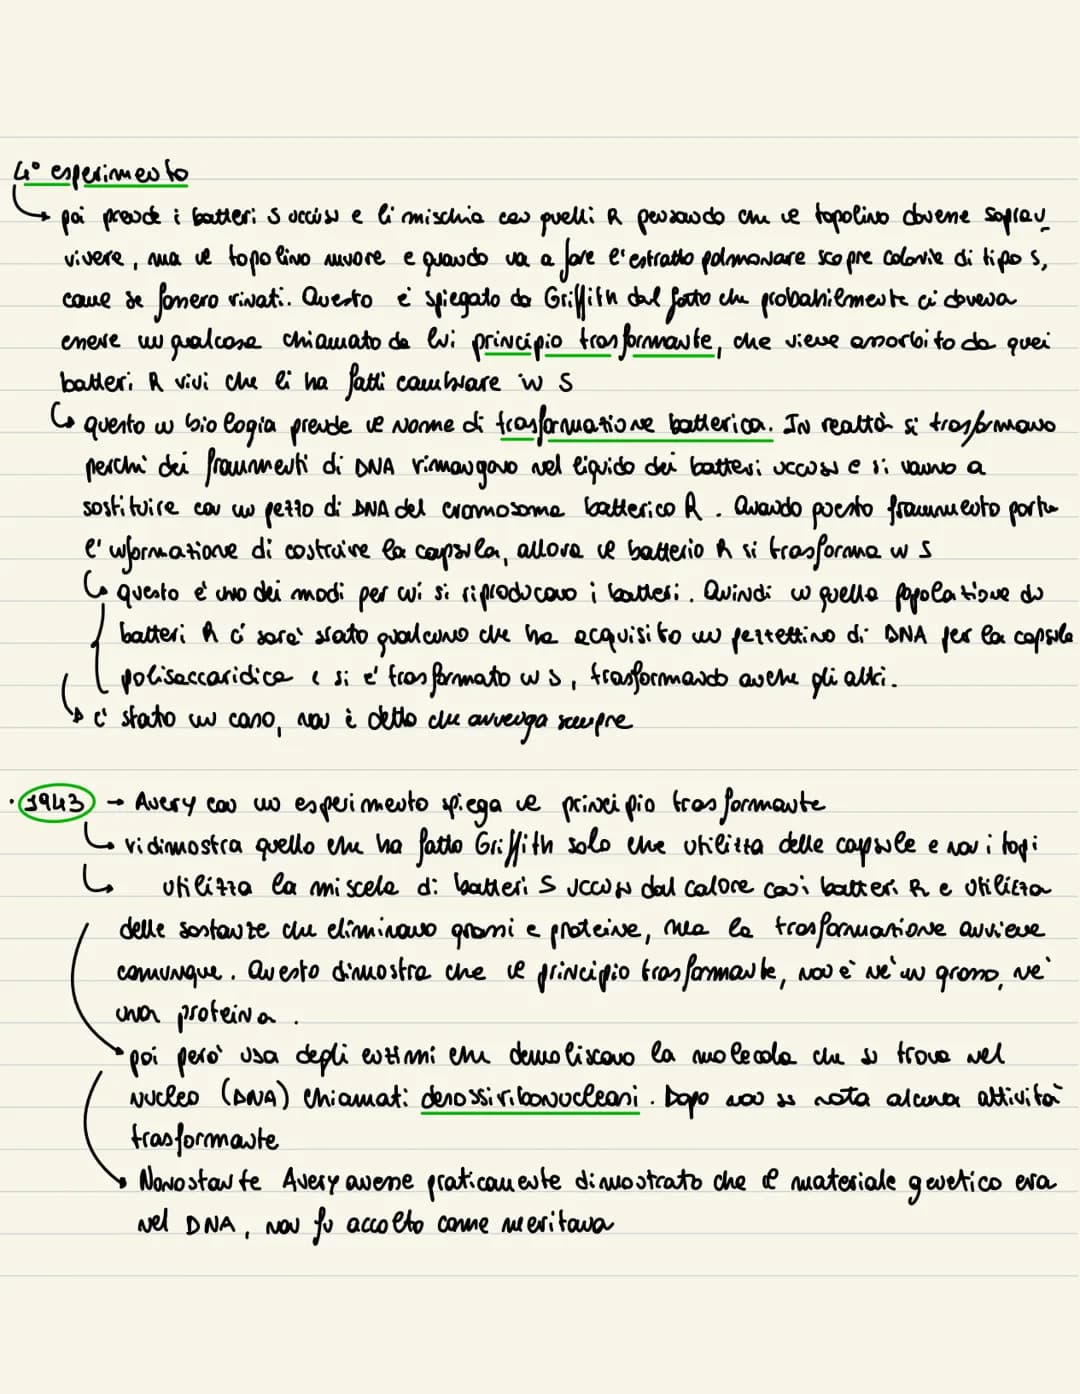 4° esperimento
poi prende i batteri S uccisi e li mischia con quelli R pensando che il topolino dovesse soprav
vivere, ma il topolino muore e quando va a fare l'estratto polmonare scopre colonie di tipo S,
come se fossero rinati. Questo è spiegato da Griffith dal fatto che probabilmente ci doveva
essere un qualcosa chiamato da lui principio trasformante, che viene assorbito da quei
batteri R vivi che li ha fatti cambiare in S
questo in biologia prende il nome di trasformazione batterica. In realtà si trasformano
perchi' dei frammenti di DNA rimangono nel liquido dei batteri uccisi e si vanno a
sostituire con un pezzo di DNA del cromosoma batterico R. Quando questo frammento porta
l'informazione di costruire la capsula, allora il batterio R si trasforma in S
questo è uno dei modi per cui si riproducono i batteri. Quindi in quella popolazione di
batteri R ci sarà stato qualcuno che ha acquisito un pezzettino di DNA per la capsula
polisaccaridica e si è trasformato in S, trasformando anche gli altri.
è stato un caso, non è detto che avvenga sempre
· 1943 → Avery con un esperimento spiega il principio trasformante
ridimostra quello che ha fatto Griffith solo che utilizza delle capsule e non i topi
utilizza la miscela di batteri S uccisi dal calore con i batteri R e utilizza
delle sostanze che eliminano grassi e proteine, ma la trasformazione avviene
comunque. Questo dimostra che il principio trasformante, non è nè un grasso, nè
una proteina.
poi però usa degli enzimi che demoliscono la molecola che si trova nel
nucleo (DNA) chiamati desossiribonucleasi. Dopo non si nota alcuna attività
trasformante
Nonostante Avery avesse praticamente dimostrato che il materiale genetico era
nel DNA, non fu accolto come meritava